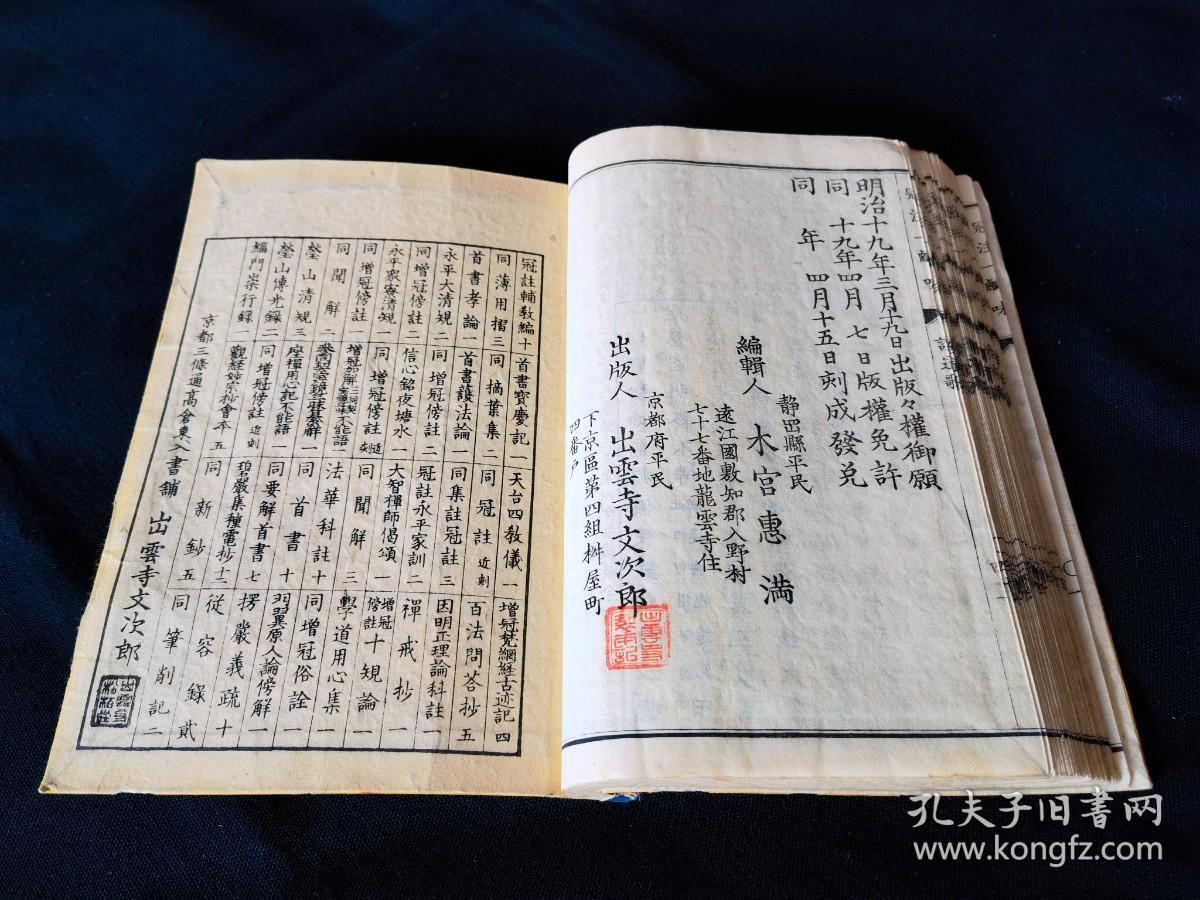 明治十九年三月十九日出版々權御願
同 十九年四月 七 日版權免許
同 年 四月十五日刻成發兌
靜岡縣平民
編輯人 木宮惠満
遠江國敷知郡入野村
七十七番地龍雲寺住
京都府平民
出版人 出雲寺文次郎
下京區第四組桝屋町
四番戸
冠註輔教編十 首書寶慶記一 天台四教儀一 増冠梵網経古迹記四
同薄用摺三 同摘葉集二 同冠註近刻 百法問荅抄五
首書孝論一 首書護法論一 同集註冠註三 因明正理論科註一
永平大清規二 同増冠傍註二 冠註永平家訓二 禪戒抄一
同増冠傍註二 信心銘夜塘水一 大智禪師偈頌一 増冠傍註十規論一
永平衆寮清規一 同増冠傍註近刻 同聞解三 學道用心集一
同増冠傍註一 不能語一 法華科註十 同増冠俗詮一
同聞解二 同首書十 羽翼原人論傍解一
瑩山清規三 座禪用心記不能語一 同要解首書七 楞嚴義疏十
瑩山傳光録二 同増冠傍註近刻 碧嚴集種電抄十二 從容錄貳
緇門崇行録一 觀経妙宗抄會本五 同新鈔五 同筆削記二
京都三條通高倉東入書鋪 出雲寺文次郎
孔夫子旧书网
www.kongfz.com